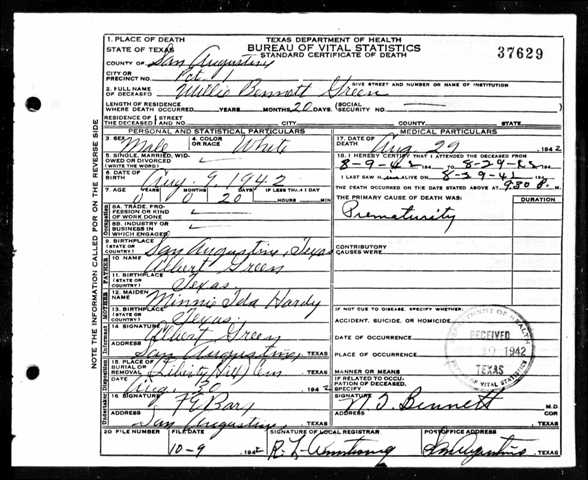 1. PLACE OF DEATH
STATE OF TEXAS
TEXAS DEPARTMENT OF HEALTH
BUREAU OF VITAL STATISTICS
STANDARD CERTIFICATE OF DEATH
37629
COUNTY OF San Augustine
CITY OR PRECINCT NO. Pct. 1
GIVE STREET AND NUMBER OR NAME OF INSTITUTION
2. FULL NAME OF DECEASED Willie Bennett Green
LENGTH OF RESIDENCE WHERE DEATH OCCURRED YEARS MONTHS 20 DAYS (SOCIAL SECURITY NO.
RESIDENCE OF THE DECEASED STREET AND NO. CITY COUNTY STATE
PERSONAL AND STATISTICAL PARTICULARS
3. SEX Male 4. COLOR OR RACE White
5. SINGLE, MARRIED, WIDOWED OR DIVORCED (WRITE THE WORD)
6. DATE OF BIRTH Aug. 9, 1942
7. AGE YEARS MONTHS DAYS IF LESS THAN 1 DAY
0 0 20 HOURS MIN
8A. TRADE, PROFESSION OR KIND OF WORK DONE
8B. INDUSTRY OR BUSINESS IN WHICH ENGAGED
9. BIRTHPLACE (STATE OR COUNTRY) San Augustine, Texas
10. NAME Albert Green
11. BIRTHPLACE (STATE OR COUNTRY) Texas.
12. MAIDEN NAME Minnie Ida Hardy
13. BIRTHPLACE (STATE OR COUNTRY) Texas.
14. SIGNATURE Albert Green
ADDRESS San Augustine, TEXAS
15. PLACE OF BURIAL OR REMOVAL (Liberty Hill) Cem
DATE Aug. 30 1942
16. SIGNATURE
ADDRESS San Augustine, TEXAS
MEDICAL PARTICULARS
17. DATE OF DEATH Aug. 29, 1942
18. I HEREBY CERTIFY THAT I ATTENDED THE DECEASED FROM
8-9-42 TO 8-29-42
I LAST SAW H ALIVE ON 8-29-42 194
THE DEATH OCCURRED ON THE DATE STATED ABOVE AT M.
THE PRIMARY CAUSE OF DEATH WAS: DURATION
Prematurity
CONTRIBUTORY CAUSES WERE:
IF NOT DUE TO DISEASE, SPECIFY WHETHER:
ACCIDENT, SUICIDE, OR HOMICIDE
DATE OF OCCURRENCE
PLACE OF OCCURRENCE TEXAS
MANNER OR MEANS
IF RELATED TO OCCUPATION OF DECEASED, SPECIFY
SIGNATURE Bennett M.D. OR
ADDRESS TEXAS
RECEIVED
1942
TEXAS
BUREAU OF VITAL STATISTICS
20 FILE NUMBER FILE DATE 10-9 1942
SIGNATURE OF LOCAL REGISTRAR R. L. Armstrong
POSTOFFICE ADDRESS San Augustine TEXAS
NOTE THE INFORMATION CALLED FOR ON THE REVERSE SIDE
Occupation
FATHER
MOTHER
Informant
Disposition
Undertaker